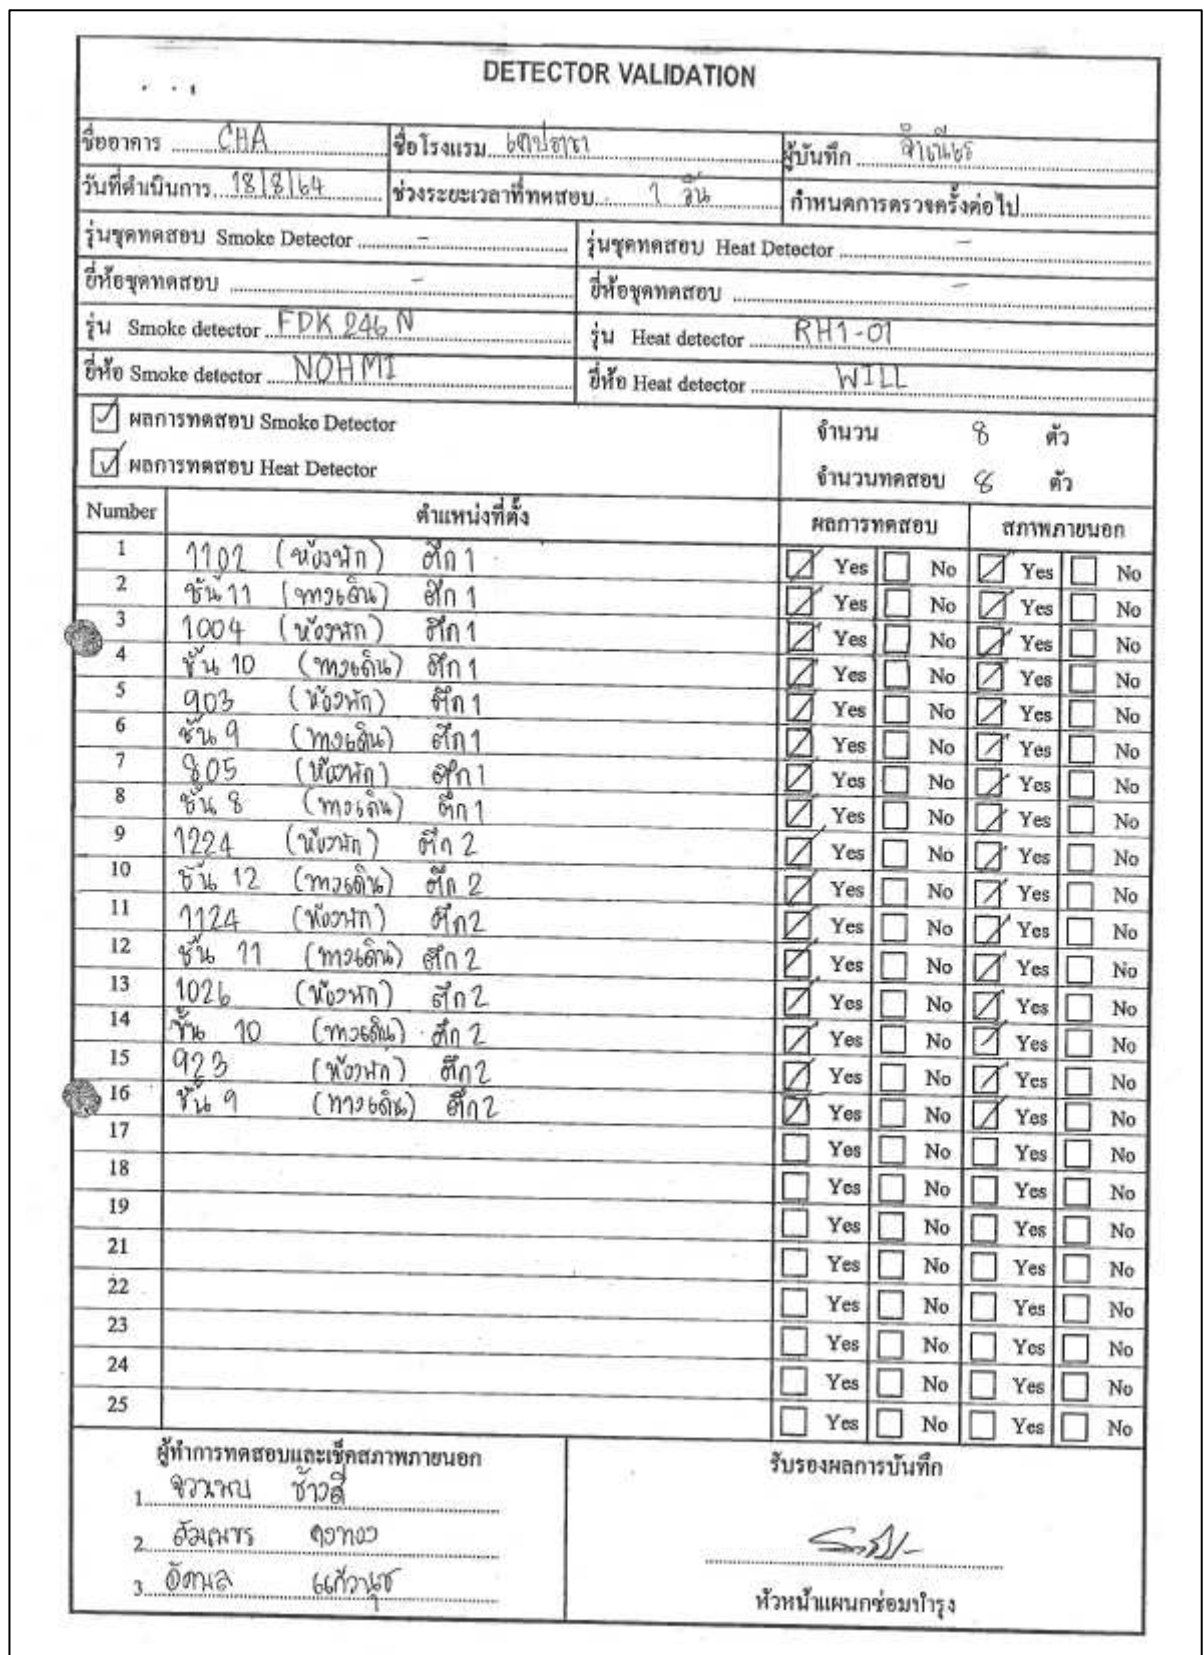 DETECTOR VALIDATION
ชื่ออาคาร CHA ชื่อโรงแรม เคปราชา ผู้บันทึก จำเนียร
วันที่ดำเนินการ 18/8/64 ช่วงระยะเวลาที่ทดสอบ 1 วัน กำหนดการตรวจครั้งต่อไป
รุ่นชุดทดสอบ Smoke Detector - รุ่นชุดทดสอบ Heat Detector -
ยี่ห้อชุดทดสอบ - ยี่ห้อชุดทดสอบ -
รุ่น Smoke detector FDK 246 N รุ่น Heat detector RH1-01
ยี่ห้อ Smoke detector NOHMI ยี่ห้อ Heat detector WILL
ผลการทดสอบ Smoke Detector จำนวน 8 ตัว
ผลการทดสอบ Heat Detector จำนวนทดสอบ 8 ตัว
Number ตำแหน่งที่ตั้ง ผลการทดสอบ สภาพภายนอก
1 1102 (ห้องพัก) ตึก 1 Yes No Yes No
2 ชั้น 11 (ทางเดิน) ตึก 1 Yes No Yes No
3 1004 (ห้องพัก) ตึก 1 Yes No Yes No
4 ชั้น 10 (ทางเดิน) ตึก 1 Yes No Yes No
5 903 (ห้องพัก) ตึก 1 Yes No Yes No
6 ชั้น 9 (ทางเดิน) ตึก 1 Yes No Yes No
7 805 (ห้องพัก) ตึก 1 Yes No Yes No
8 ชั้น 8 (ทางเดิน) ตึก 1 Yes No Yes No
9 1224 (ห้องพัก) ตึก 2 Yes No Yes No
10 ชั้น 12 (ทางเดิน) ตึก 2 Yes No Yes No
11 1124 (ห้องพัก) ตึก 2 Yes No Yes No
12 ชั้น 11 (ทางเดิน) ตึก 2 Yes No Yes No
13 1026 (ห้องพัก) ตึก 2 Yes No Yes No
14 ชั้น 10 (ทางเดิน) ตึก 2 Yes No Yes No
15 923 (ห้องพัก) ตึก 2 Yes No Yes No
16 ชั้น 9 (ทางเดิน) ตึก 2 Yes No Yes No
17 Yes No Yes No
18 Yes No Yes No
19 Yes No Yes No
21 Yes No Yes No
22 Yes No Yes No
23 Yes No Yes No
24 Yes No Yes No
25 Yes No Yes No
ผู้ทำการทดสอบและเช็คสภาพภายนอก รับรองผลการบันทึก
1
2
3 แก้วนุช
หัวหน้าแผนกซ่อมบำรุง